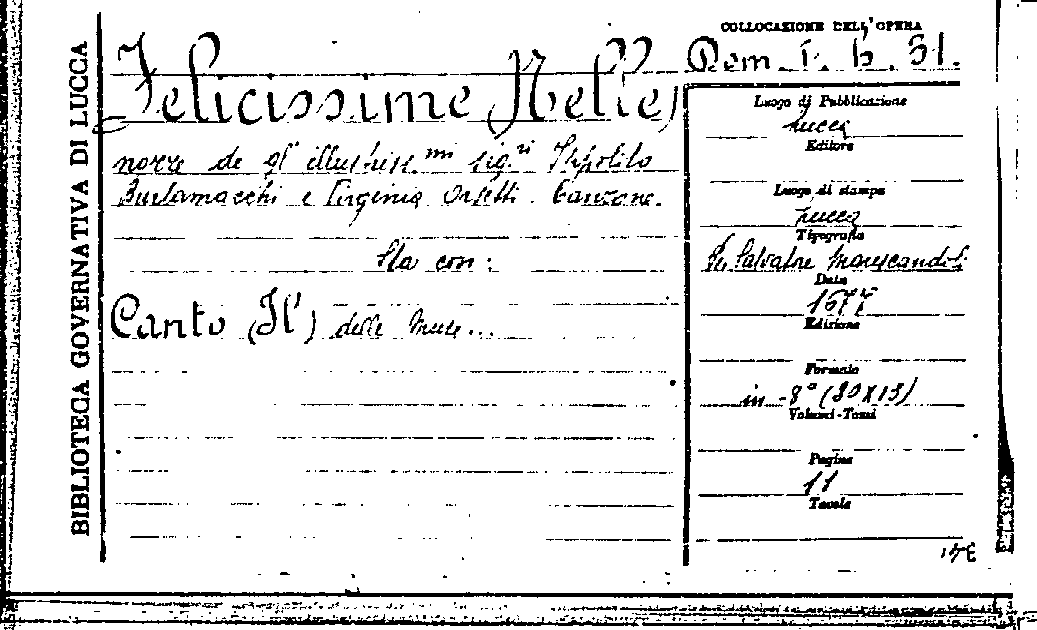 BIBLIOTECA GOVERNATIVA DI LUCCA
COLLOCAZIONE DELL'OPERA
Felicissime (Nelle)
nozze de gl' illustriss.mi sig.ri Ippolito
Burlamacchi e Virginia Orsetti. Canzone.
Sta con:
Canto (Il) delle Muse...
Luogo di Pubblicazione
Lucca
Editore
Luogo di stampa
Lucca
Tipografia
Salvatore Marescandoli
Data
1677
Edizione
Formato
in -8° (20x15)
Volumi-Tomi
Pagine
11
Tavole